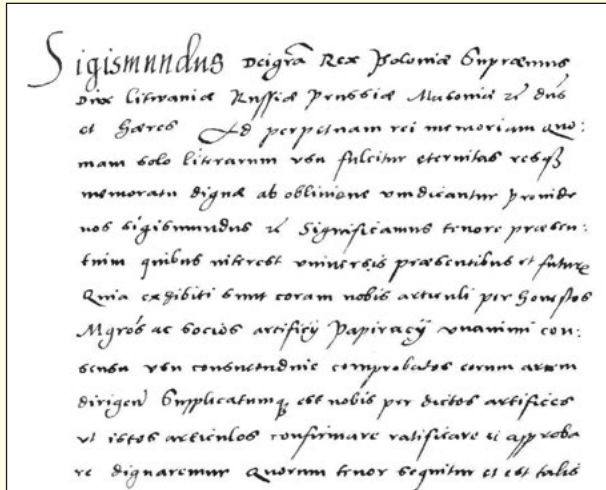 Sigismundus Dei gra Rex Poloniæ Supræmus
Dux litvaniæ Russiæ Prussiæ Masoniæ zc dns
et hæres Ad perpetuam rei memoriam Quo
niam solo literarum usu fulcitur eternitas resq3
memoratu dignæ ab oblivione vindicantur Proinde
nos sigismundus zc Significamus tenore præsen:
tium quibus interest universis præsentibus et futuris
Quia exhibiti sunt coram nobis articuli per honestos
Mgros ac socios artificij Papiracij unanimi con:
sensu usu consuetudine comprobatos eorum artem
dirigen Supplicatumq est nobis per dictos artifices
ut istos articulos confirmare ratificare et approba
re dignaremur Quorum tenor sequitur et est talis